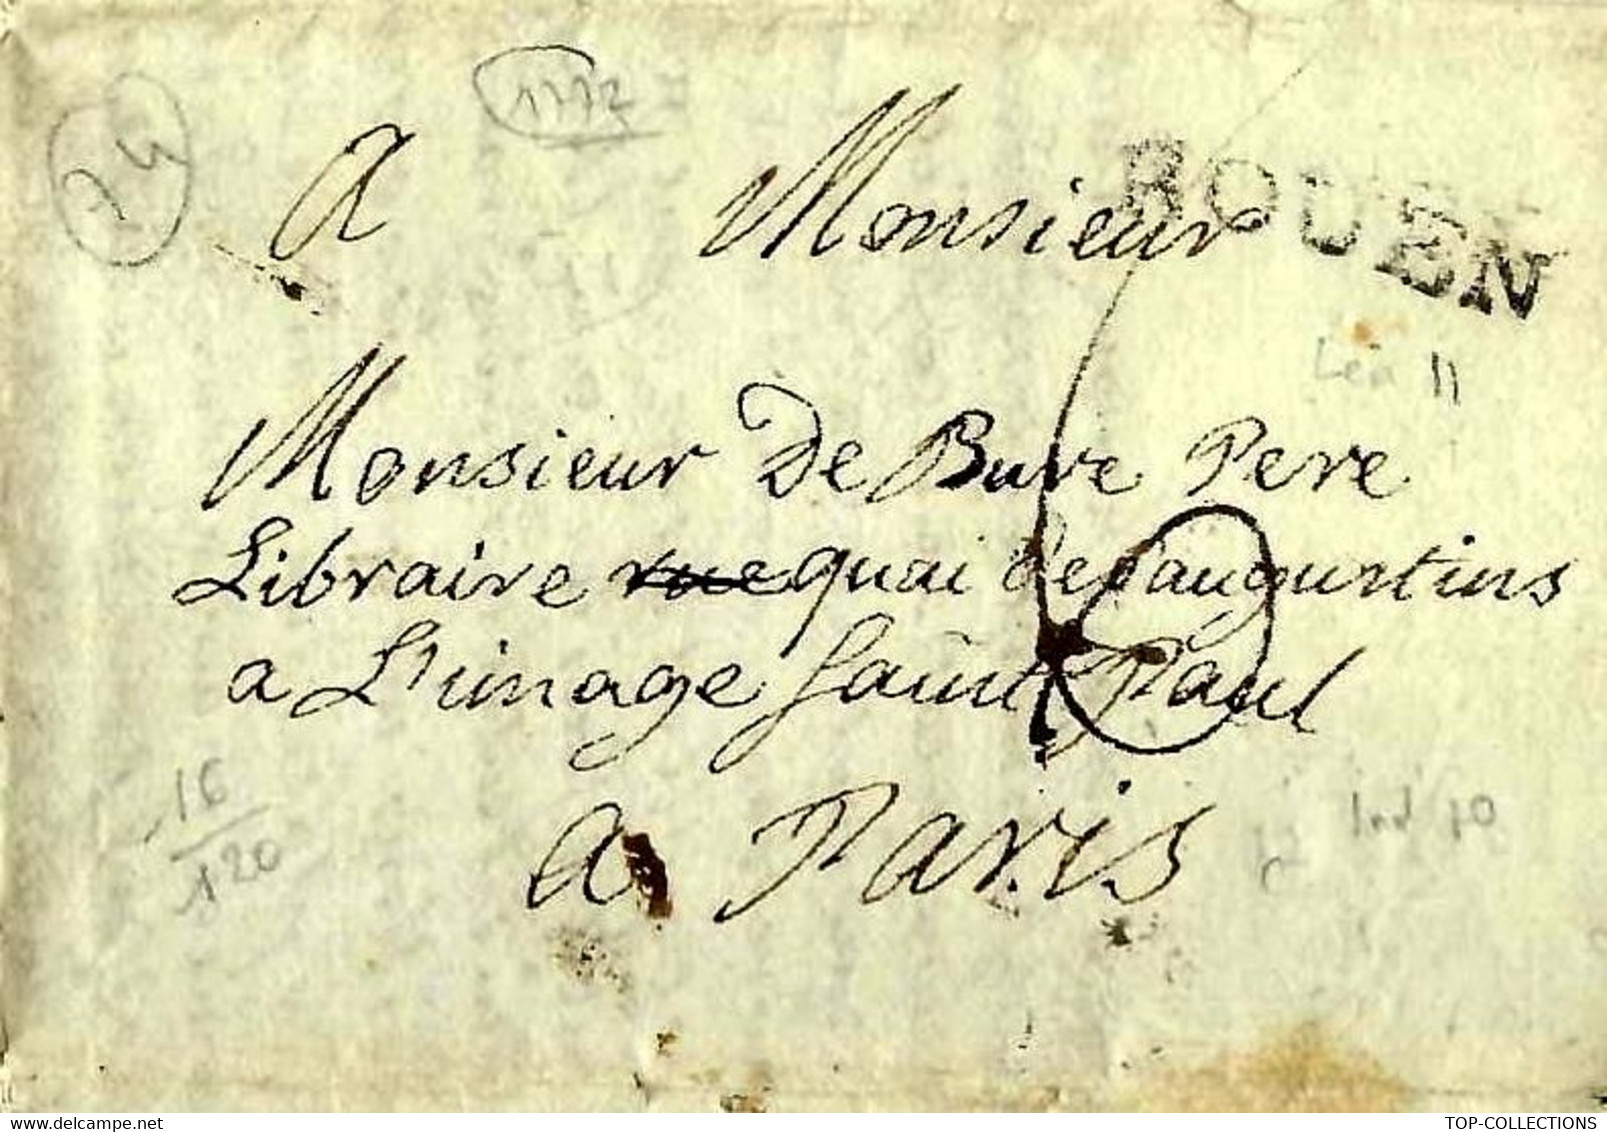 24
1772
A Monsieur
ROUEN
Lea 11
Monsieur De Bure Pere
Libraire rue quai des augustins
a L'image Saint Paul
a Paris
16
120
Ind 10
delcampe.net
TOP-COLLECTIONS